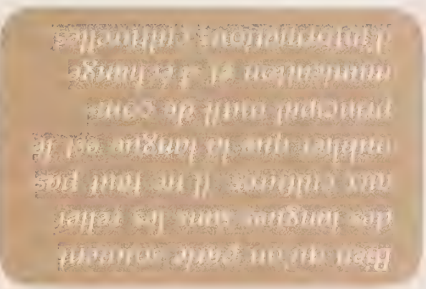 Bien qu'on parle souvent
des langues sans les relier
aux cultures, il ne faut pas
oublier que la langue est le
principal outil de com-
munication et d'échange
d'informations culturelles